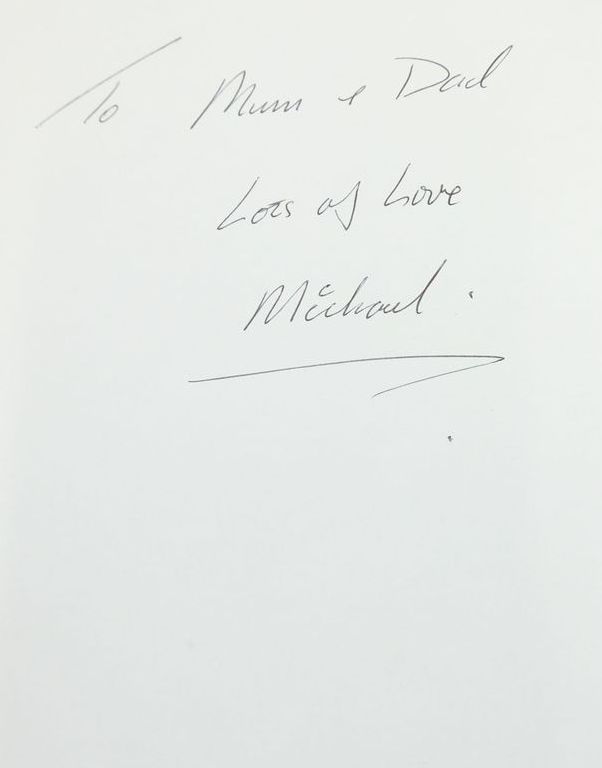 To Mum & Dad
Lots of Love
Michael.